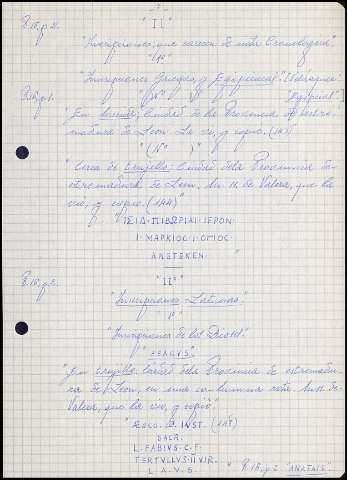 "II"
"Inscripciones, que carecen de nota Cronologica"
"1º"
"Inscripciones Griegas, y Egipcias"
B.15, p.1.
"En ciudad de la Provincia de Estre-
madura de Leon. La vio, y copio. (143)
"Cerca de Trujillo, Ciudad dela Provincia de
estremadura de Leon, An. 11. de Valera, que la
vio, y copio. (144)
ΙΣΙΔ·ΠΙΒΩΡΙΑΙ·ΙΕΡΟΝ·
Ι·ΜΑΡΚΙΟΣ·Ι·ΟΠΟΣ·
ΑΝΕΤΕΚΕΝ·
B.15, p.2.
"II"
"Inscripciones Latinas"
"1º"
"Inscripciones de los Dioses"
"En Trujillo, Ciudad dela Provincia de estremadu-
ra de Leon, en una columna rota. An. 11. de
Valera, que la vio, y copió."
INST. (145)
SACR.
L·FABIVS·C·F·
TERTVLLVS·II VIR·
L·A·V·S·
B.15, p.2.